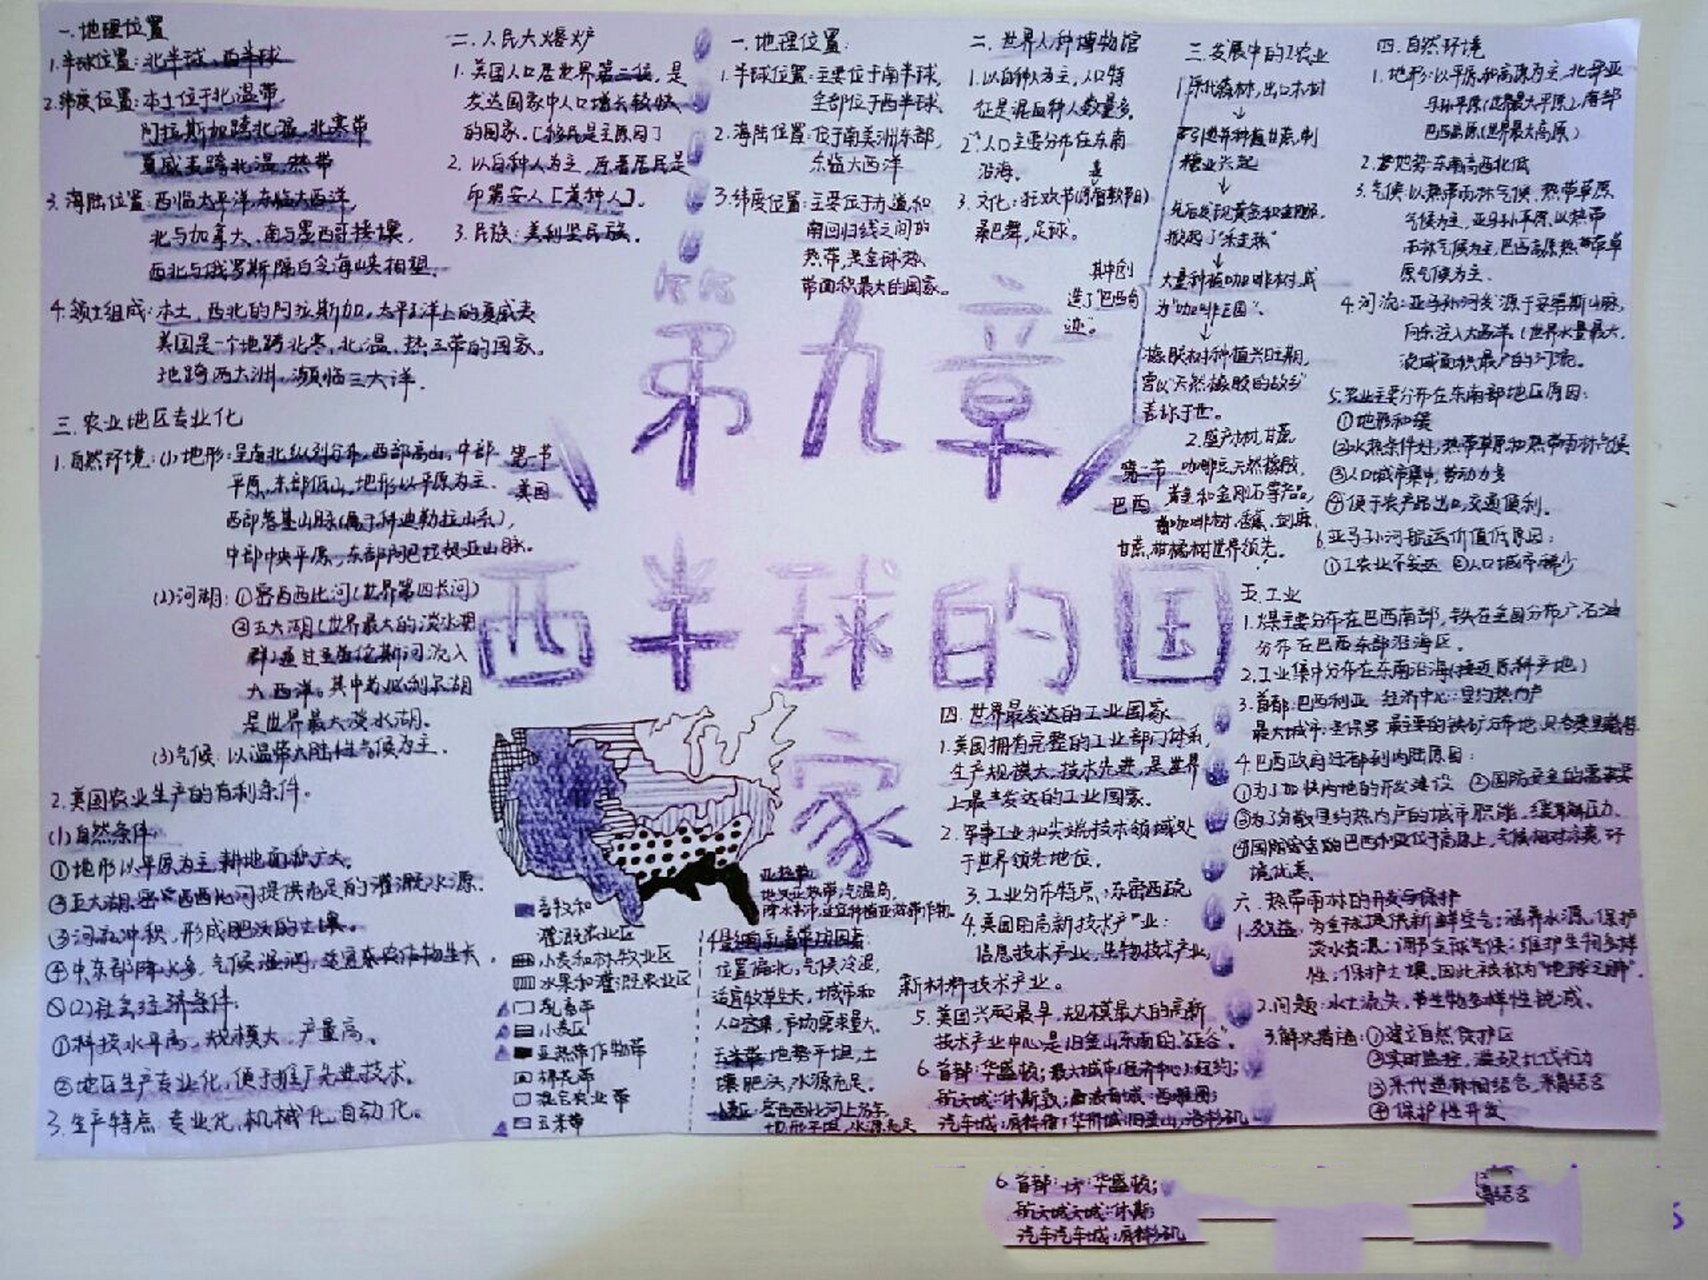 一.地理位置
1.半球位置:北半球、西半球
2.纬度位置:本土位于北温带
阿拉斯加跨北温、北寒带
夏威夷跨北温、热带
3.海陆位置:西临太平洋,东临大西洋,
北与加拿大、南与墨西哥接壤,
西北与俄罗斯隔白令海峡相望。
4.领土组成:本土、西北的阿拉斯加、太平洋上的夏威夷
美国是一个地跨北寒、北温、热三带的国家。
地跨两大洲,濒临三大洋.
三.农业地区专业化
1.自然环境:(1)地形:呈南北纵列分布,西部高山,中部
平原,东部低山,地形以平原为主.
西部落基山脉(属于科迪勒拉山系),
中部中央平原,东部阿巴拉契亚山脉。
(2)河湖:①密西西比河(世界第四长河)
②五大湖(世界最大的淡水湖
群)通过圣劳伦斯河流入
大西洋。其中苏必利尔湖
是世界最大淡水湖.
(3)气候:以温带大陆性气候为主.
2.美国农业生产的有利条件。
(1)自然条件:
①地形以平原为主,耕地面积广大。
②五大湖、密西西比河提供充足的灌溉水源.
③河流冲积,形成肥沃的土壤。
④中东部降水多,气候湿润,适宜农作物生长.
(2)社会经济条件:
①科技水平高,规模大,产量高。
②地区生产专业化,便于推广先进技术。
3.生产特点:专业化,机械化,自动化。
第一节
美国
二.人民大熔炉
1.美国人口居世界第三位,是
发达国家中人口增长较快
的国家.[移民是主原因]
2.以白种人为主,原著居民是
印第安人[黄种人]。
3.民族:美利坚民族。
第九章
西半球的国
家
一.地理位置:
1.半球位置:主要位于南半球,
全部位于西半球.
2.海陆位置:位于南美洲东部,
东临大西洋
3.纬度位置:主要位于赤道和
南回归线之间的
热带,是全球热
带面积最大的国家。
二.世界人种博物馆
1.以白种人为主,人口特
征是混血种人数量多.
2.人口主要分布在东南
沿海.
3.文化:狂欢节
桑巴舞,足球。
三.发展中的工农业
1.砍伐森林,出口木材
↓
糖业兴起
↓
↓
大量种植咖啡树,成
为"咖啡王国".
↓
橡胶树种植兴旺期,
曾以"天然橡胶的故乡"
著称于世.
其中创
造了"巴西奇
迹"。
第二节
巴西
咖啡豆天然橡胶,
黄金和金刚石等产品,
甘蔗,柑橘树世界领先。
四.自然环境
1.地形:以平原和高原为主,北部亚
马孙平原(世界最大平原),南部
巴西高原(世界最大高原)
3.气候:以热带雨林气候、热带草原
气候为主,亚马孙平原以热带
雨林气候为主,巴西高原热带草
原气候为主.
4.河流:亚马孙河发源于安第斯山脉,
向东注入大西洋(世界水量最大,
流域面积最广的河流。
5.农业主要分布在东南部地区原因:
①地形和缓
②水热条件好,热带草原和热带雨林气候
③人口城市集中,劳动力多
④便于农产品出口,交通便利.
6.亚马孙河航运价值低原因:
①工农业不发达 ②人口城市稀少
五.工业
1.煤主要分布在巴西南部,铁在全国分布广,石油
分布在巴西东部沿海区.
2.工业集中分布在东南沿海(接近原料产地)
3.首都:巴西利亚 经济中心:里约热内卢
最大城市:圣保罗
4.巴西政府迁都到内陆原因:
①为了加快内地的开发建设 ②国防安全的需要
③为了分散里约热内卢的城市职能,缓解压力.
境优美.
六.热带雨林的开发与保护
1.效益:为全球提供新鲜空气;涵养水源,保护
淡水资源;调节全球气候;维护生物多样
性;保护土壤。因此被称为"地球之肺".
2.问题:水土流失,带生物多样性锐减.
3.解决措施:①建立自然保护区
②实时监控,滥砍乱伐行为
④保护性开发
四.世界最发达的工业国家
1.美国拥有完整的工业部门体系,
生产规模大,技术先进,是世界
上最发达的工业国家.
2.军事工业和尖端技术领域处
于世界领先地位.
3.工业分布特点:东密西疏
4.美国的高新技术产业:
信息技术产业,生物技术产业,
新材料技术产业。
5.美国兴起最早,规模最大的高新
技术产业中心是旧金山东南的"硅谷".
6.首都:华盛顿;最大城市(经济中心):纽约;
航天城:休斯敦;
汽车城:底特律;华侨城:旧金山,洛杉矶
亚热带
地处亚热带,气温高,
位置偏北,气候冷湿,
适宜牧草生长,城市和
人口密集,市场需求量大.
玉米带:地势平坦,土
壤肥沃,水源充足。
小麦区:密西西比河上游,
地形平坦,水源充足
畜牧和
灌溉农业区
小麦和林牧业区
水果和灌溉农业区
乳畜带
小麦区
亚热带作物带
棉花带
混合农业带
玉米带
6.首都:华盛顿;